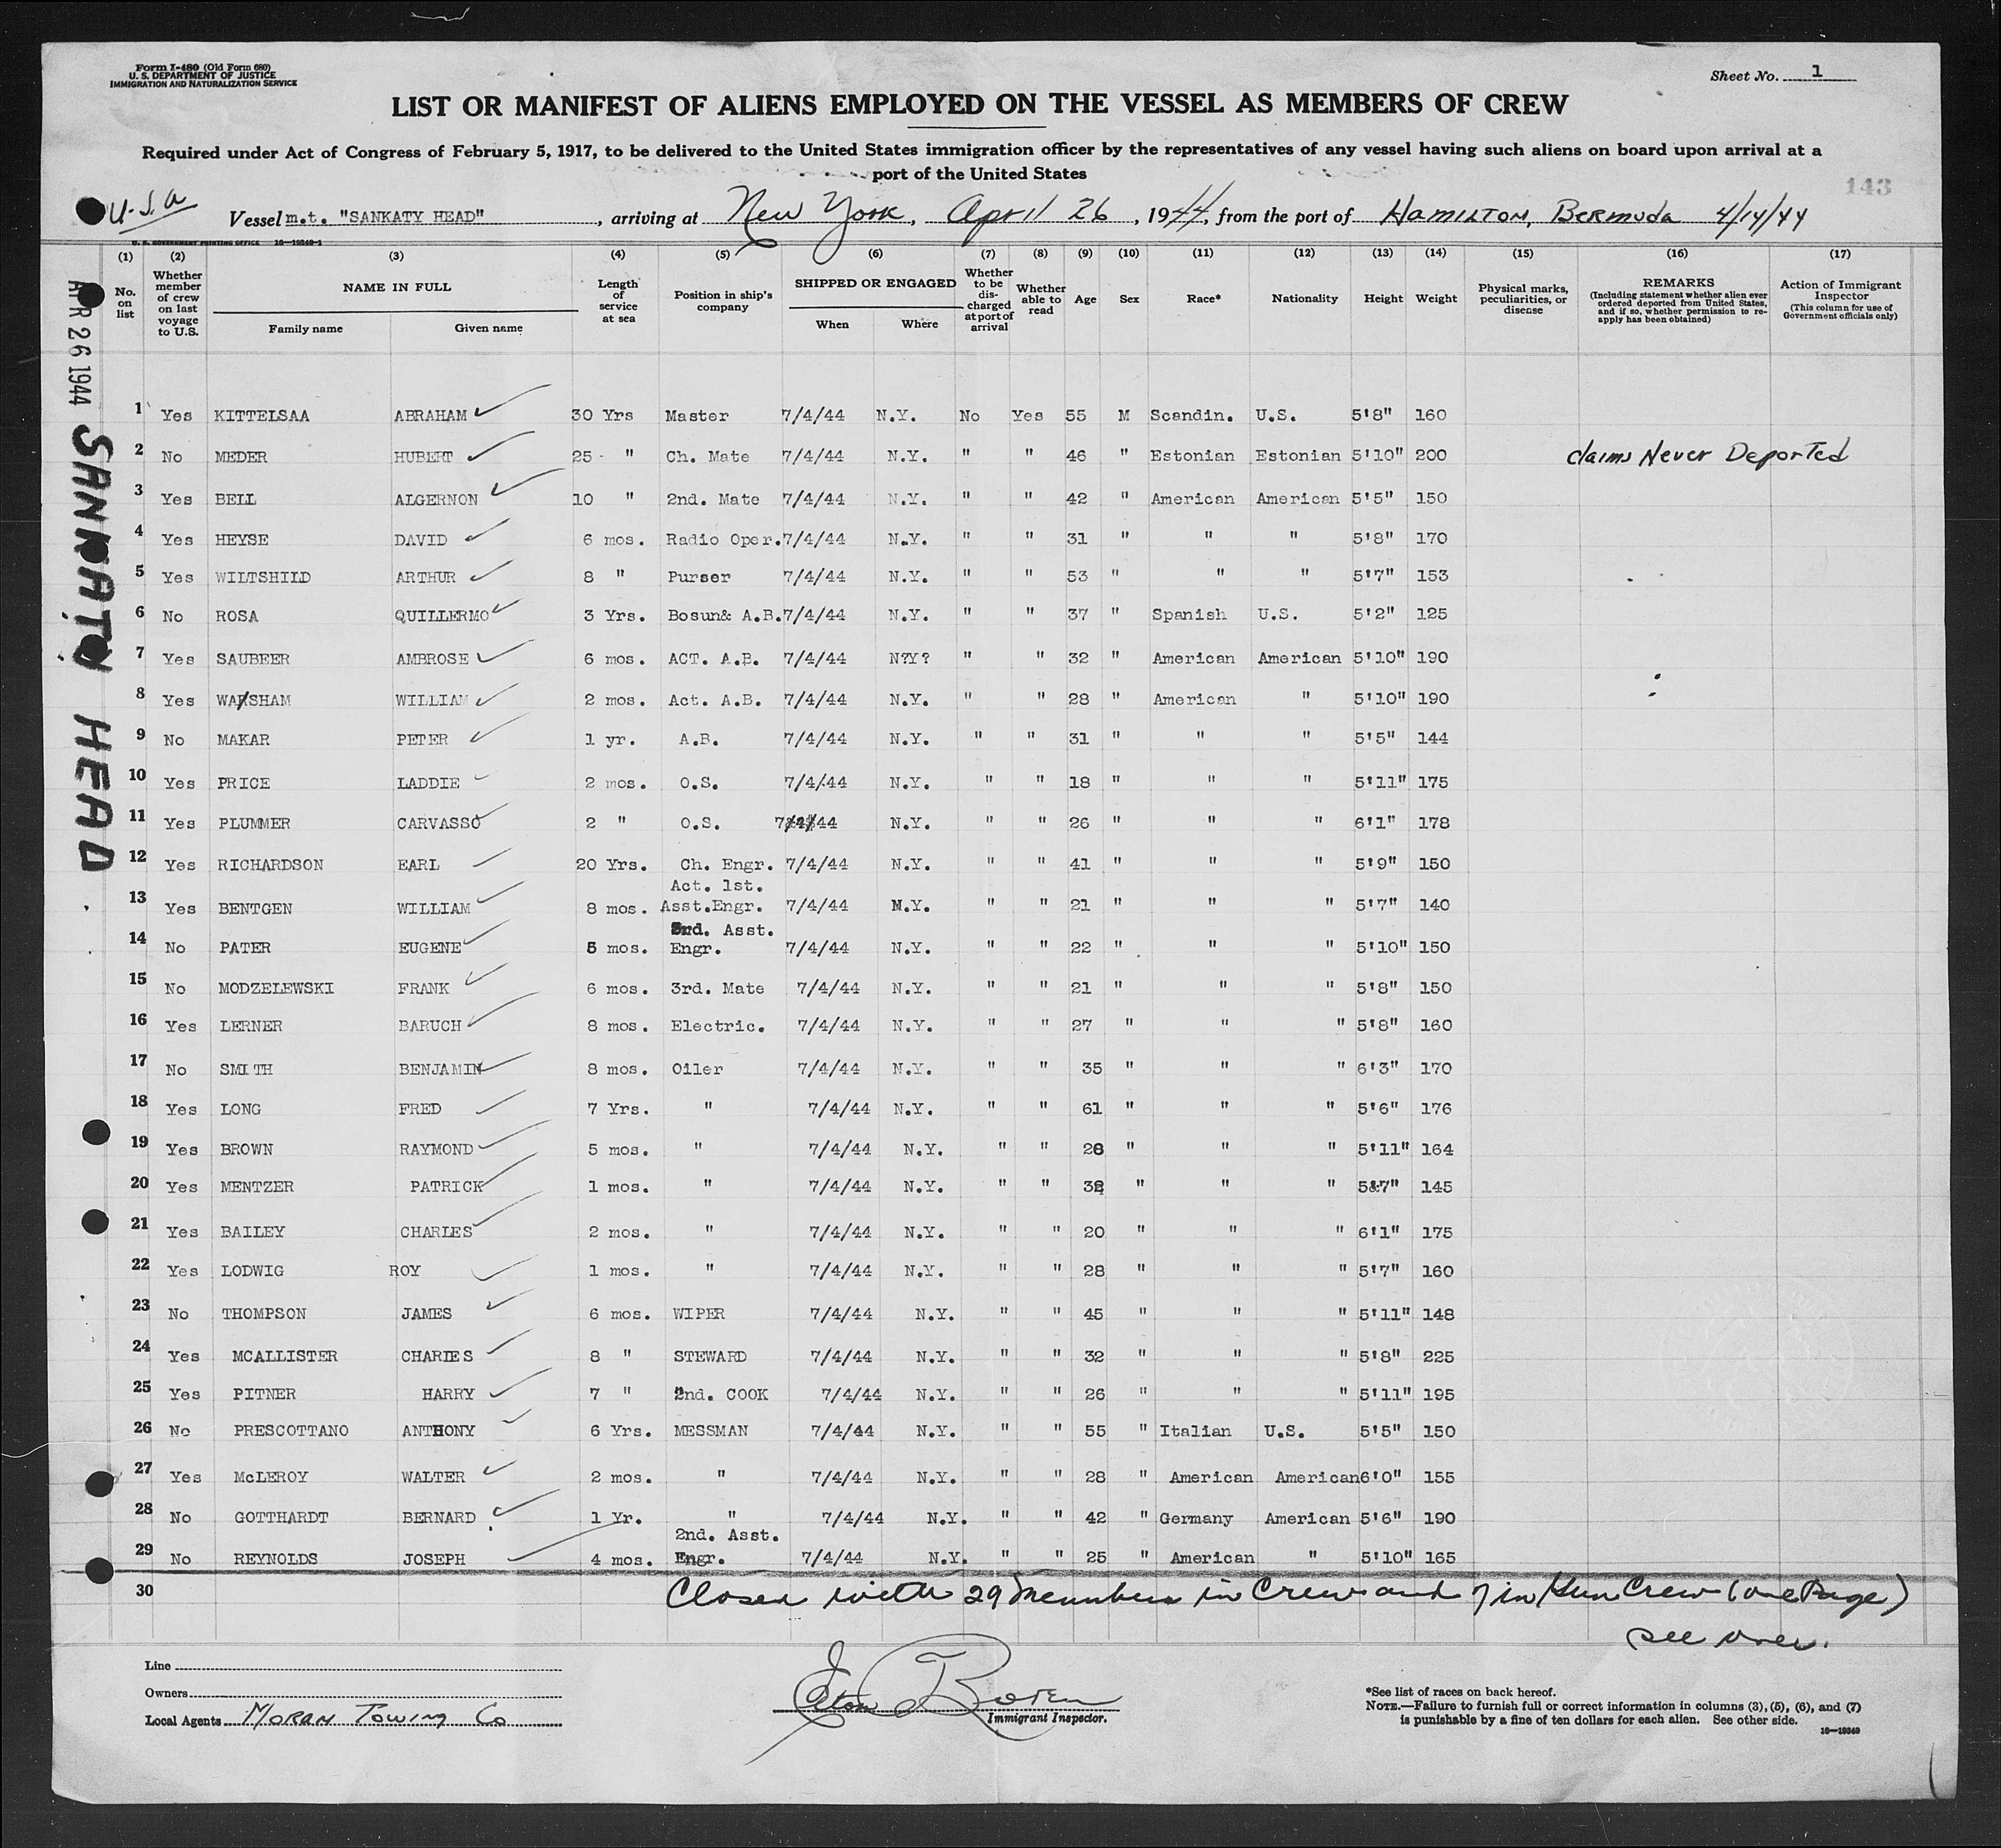 Form I-480 (Old Form 680)
U. S. DEPARTMENT OF JUSTICE
IMMIGRATION AND NATURALIZATION SERVICE
Sheet No. 1
LIST OR MANIFEST OF ALIENS EMPLOYED ON THE VESSEL AS MEMBERS OF CREW
Required under Act of Congress of February 5, 1917, to be delivered to the United States immigration officer by the representatives of any vessel having such aliens on board upon arrival at a
port of the United States
143
U.S.A
Vessel m.t. "SANKATY HEAD", arriving at New York, April 26, 1944, from the port of Hamilton, Bermuda 4/14/44
U. S. GOVERNMENT PRINTING OFFICE 16—19349-1
APR 26 1944
SANKATY HEAD
(1) No. on list
(2) Whether member of crew on last voyage to U.S.
(3) NAME IN FULL
Family name Given name
(4) Length of service at sea
(5) Position in ship's company
(6) SHIPPED OR ENGAGED
When Where
(7) Whether to be discharged at port of arrival
(8) Whether able to read
(9) Age
(10) Sex
(11) Race*
(12) Nationality
(13) Height
(14) Weight
(15) Physical marks, peculiarities, or disease
(16) REMARKS
(Including statement whether alien ever ordered deported from United States, and if so, whether permission to re-apply has been obtained)
(17) Action of Immigrant Inspector
(This column for use of Government officials only)
1 Yes KITTELSAA ABRAHAM 30 Yrs Master 7/4/44 N.Y. No Yes 55 M Scandin. U.S. 5'8" 160
2 No MEDER HUBERT 25 - " Ch. Mate 7/4/44 N.Y. " " 46 " Estonian Estonian 5'10" 200 claims Never Deported
3 Yes BELL ALGERNON 10 " 2nd. Mate 7/4/44 N.Y. " " 42 " American American 5'5" 150
4 Yes HEYSE DAVID 6 mos. Radio Oper. 7/4/44 N.Y. " " 31 " " " 5'8" 170
5 Yes WILTSHILD ARTHUR 8 " Purser 7/4/44 N.Y. " " 53 " " " 5'7" 153
6 No ROSA QUILLERMO 3 Yrs. Bosun& A.B. 7/4/44 N.Y. " " 37 " Spanish U.S. 5'2" 125
7 Yes SAUBEER AMBROSE 6 mos. ACT. A.B. 7/4/44 N?Y? " " 32 " American American 5'10" 190
8 Yes WARSHAM WILLIAM 2 mos. Act. A.B. 7/4/44 N.Y. " " 28 " American " 5'10" 190
9 No MAKAR PETER 1 yr. A.B. 7/4/44 N.Y. " " 31 " " " 5'5" 144
10 Yes PRICE LADDIE 2 mos. O.S. 7/4/44 N.Y. " " 18 " " " 5'11" 175
11 Yes PLUMMER CARVASSO 2 " O.S. 7/4/44 N.Y. " " 26 " " " 6'1" 178
12 Yes RICHARDSON EARL 20 Yrs. Ch. Engr. 7/4/44 N.Y. " " 41 " " " 5'9" 150
Act. 1st.
13 Yes BENTGEN WILLIAM 8 mos. Asst.Engr. 7/4/44 N.Y. " " 21 " " " 5'7" 140
3rd. Asst.
14 No PATER EUGENE 5 mos. Engr. 7/4/44 N.Y. " " 22 " " " 5'10" 150
15 No MODZELEWSKI FRANK 6 mos. 3rd. Mate 7/4/44 N.Y. " " 21 " " " 5'8" 150
16 Yes LERNER BARUCH 8 mos. Electric. 7/4/44 N.Y. " " 27 " " " 5'8" 160
17 No SMITH BENJAMIN 8 mos. Oiler 7/4/44 N.Y. " " 35 " " " 6'3" 170
18 Yes LONG FRED 7 Yrs. " 7/4/44 N.Y. " " 61 " " " 5'6" 176
19 Yes BROWN RAYMOND 5 mos. " 7/4/44 N.Y. " " 28 " " " 5'11" 164
20 Yes MENTZER PATRICK 1 mos. " 7/4/44 N.Y. " " " " " 5'7" 145
21 Yes BAILEY CHARLES 2 mos. " 7/4/44 N.Y. " " 20 " " " 6'1" 175
22 Yes LODWIG ROY 1 mos. " 7/4/44 N.Y. " " 28 " " " 5'7" 160
23 No THOMPSON JAMES 6 mos. WIPER 7/4/44 N.Y. " " 45 " " " 5'11" 148
24 Yes MCALLISTER CHARLES 8 " STEWARD 7/4/44 N.Y. " " 32 " " " 5'8" 225
25 Yes PITNER HARRY 7 " 2nd. COOK 7/4/44 N.Y. " " 26 " " " 5'11" 195
26 No PRESCOTTANO ANTHONY 6 Yrs. MESSMAN 7/4/44 N.Y. " " 55 " Italian U.S. 5'5" 150
27 Yes McLEROY WALTER 2 mos. " 7/4/44 N.Y. " " 28 " American American 6'0" 155
28 No GOTTHARDT BERNARD 1 Yr. " 7/4/44 N.Y. " " 42 " Germany American 5'6" 190
2nd. Asst.
29 No REYNOLDS JOSEPH 4 mos. Engr. 7/4/44 N.Y. " " 25 " American " 5'10" 165
30 Closed with 29 Members in Crew and 7 in Gun Crew (one Page)
see over.
Line
Owners
Local Agents Moran Towing Co
Immigrant Inspector.
*See list of races on back hereof.
NOTE.—Failure to furnish full or correct information in columns (3), (5), (6), and (7)
is punishable by a fine of ten dollars for each alien. See other side.
16—19349